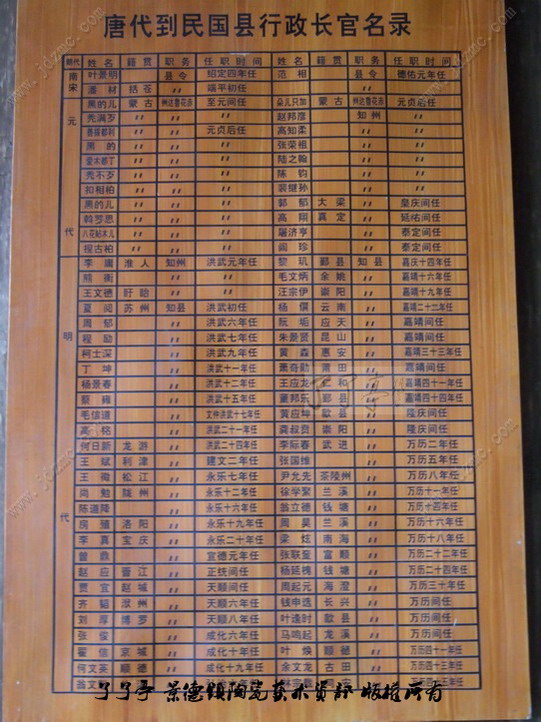 唐代到民国县行政长官名录
朝代 姓名 籍贯 职务 任职时间 姓名 籍贯 职务 任职时间
南宋 叶景明 县令 绍定四年任 范相 县令 德佑元年任
潘材 括苍 〃 端平初任
元代 黑的儿 蒙古 州达鲁花赤 至元间任 朵儿只加 蒙古 州达鲁花赤 元贞后任
秃满歹 〃 〃 〃 赵邦彦 知州 〃
昔援都利 〃 〃 元贞后任 高知柔 〃 〃
黑的 〃 〃 〃 张荣祖 〃 〃
爱木都丁 〃 〃 〃 陆之翰 〃 〃
秃不歹 〃 〃 〃 陈钧 〃 〃
扣相柏 〃 〃 〃 裴继孙 〃 〃
黑的儿 〃 〃 〃 郭郁 大梁 〃 皇庆间任
斡罗思 〃 〃 〃 高翔 真定 〃 延佑间任
八花帖木儿 〃 〃 〃 屠济亨 〃 泰定间任
捏古柏 〃 〃 〃 阎珍 〃 泰定间任
明代 李庸 淮人 知州 洪武元年任 黎玑 鄞县 知县 嘉庆十四年任
熊衡 〃 〃 毛文炳 余姚 〃 嘉靖十六年任
王文德 盱眙 〃 〃 汪宗伊 崇阳 〃 嘉靖十九年任
夏阅 苏州 知县 洪武初任 杨儇 云南 〃 嘉靖二十二年任
周郁 〃 洪武六年任 阮垢 应天 〃 嘉靖间任
程励 〃 洪武七年任 朱景贤 昆山 〃 嘉靖间任
柯士深 〃 洪武九年任 黄森 惠安 〃 嘉靖三十三年任
丁坤 〃 洪武十一年任 萧奇勋 莆田 〃 嘉靖间任
杨景春 〃 洪武十二年任 王应龙 和 〃 嘉靖四十一年任
蔡雍 〃 洪武十五年任 董邦乐 鄞县 〃 嘉靖四十四年任
毛信道 〃 洪武十七年任 黄应坤 歙县 〃 隆庆间任
高铭 〃 洪武二十一年任 龚叔贲 崇阳 〃 隆庆间任
何日新 龙游 〃 洪武二十四年任 李际春 武进 〃 万历二年任
王斌 利津 〃 建文二年任 张国维 〃 万历五年任
王衡 松江 〃 永乐七年任 尹允先 茶陵州 〃 万历八年任
尚勉 陇州 〃 永乐十二年任 徐学聚 兰溪 〃 万历十一年任
陈道隆 〃 永乐十六年任 翁立德 钱塘 〃 万历十四年任
房殖 洛阳 〃 永乐十九年任 周昊 兰溪 〃 万历十六年任
李真 宝庆 〃 永乐二十年任 梁炫 南海 〃 万历十八年任
曾鼎 〃 宣德元年任 张联奎 富顺 〃 万历二十二年任
赵应 晋江 〃 正统间任 杨延槐 钱塘 〃 万历二十四年任
贾宜 赵城 〃 天顺间任 周起元 海澄 〃 万历三十年任
齐韬 滁州 〃 天顺六年任 钱中选 长兴 〃 万历间任
刘厚 博罗 〃 天顺八年任 叶逢时 歙县 〃 万历间任
张俊 〃 成化六年任 马鸣起 龙溪 〃 万历间任
翟信 京城 〃 成化十年任 叶焕 顺德 〃 万历四十年任
何文英 顺德 〃 成化十九年任 余文龙 古田 〃 万历四十三年任
了了亭 景德镇陶瓷艺术资讯 版权所有
www.jdzmc.com